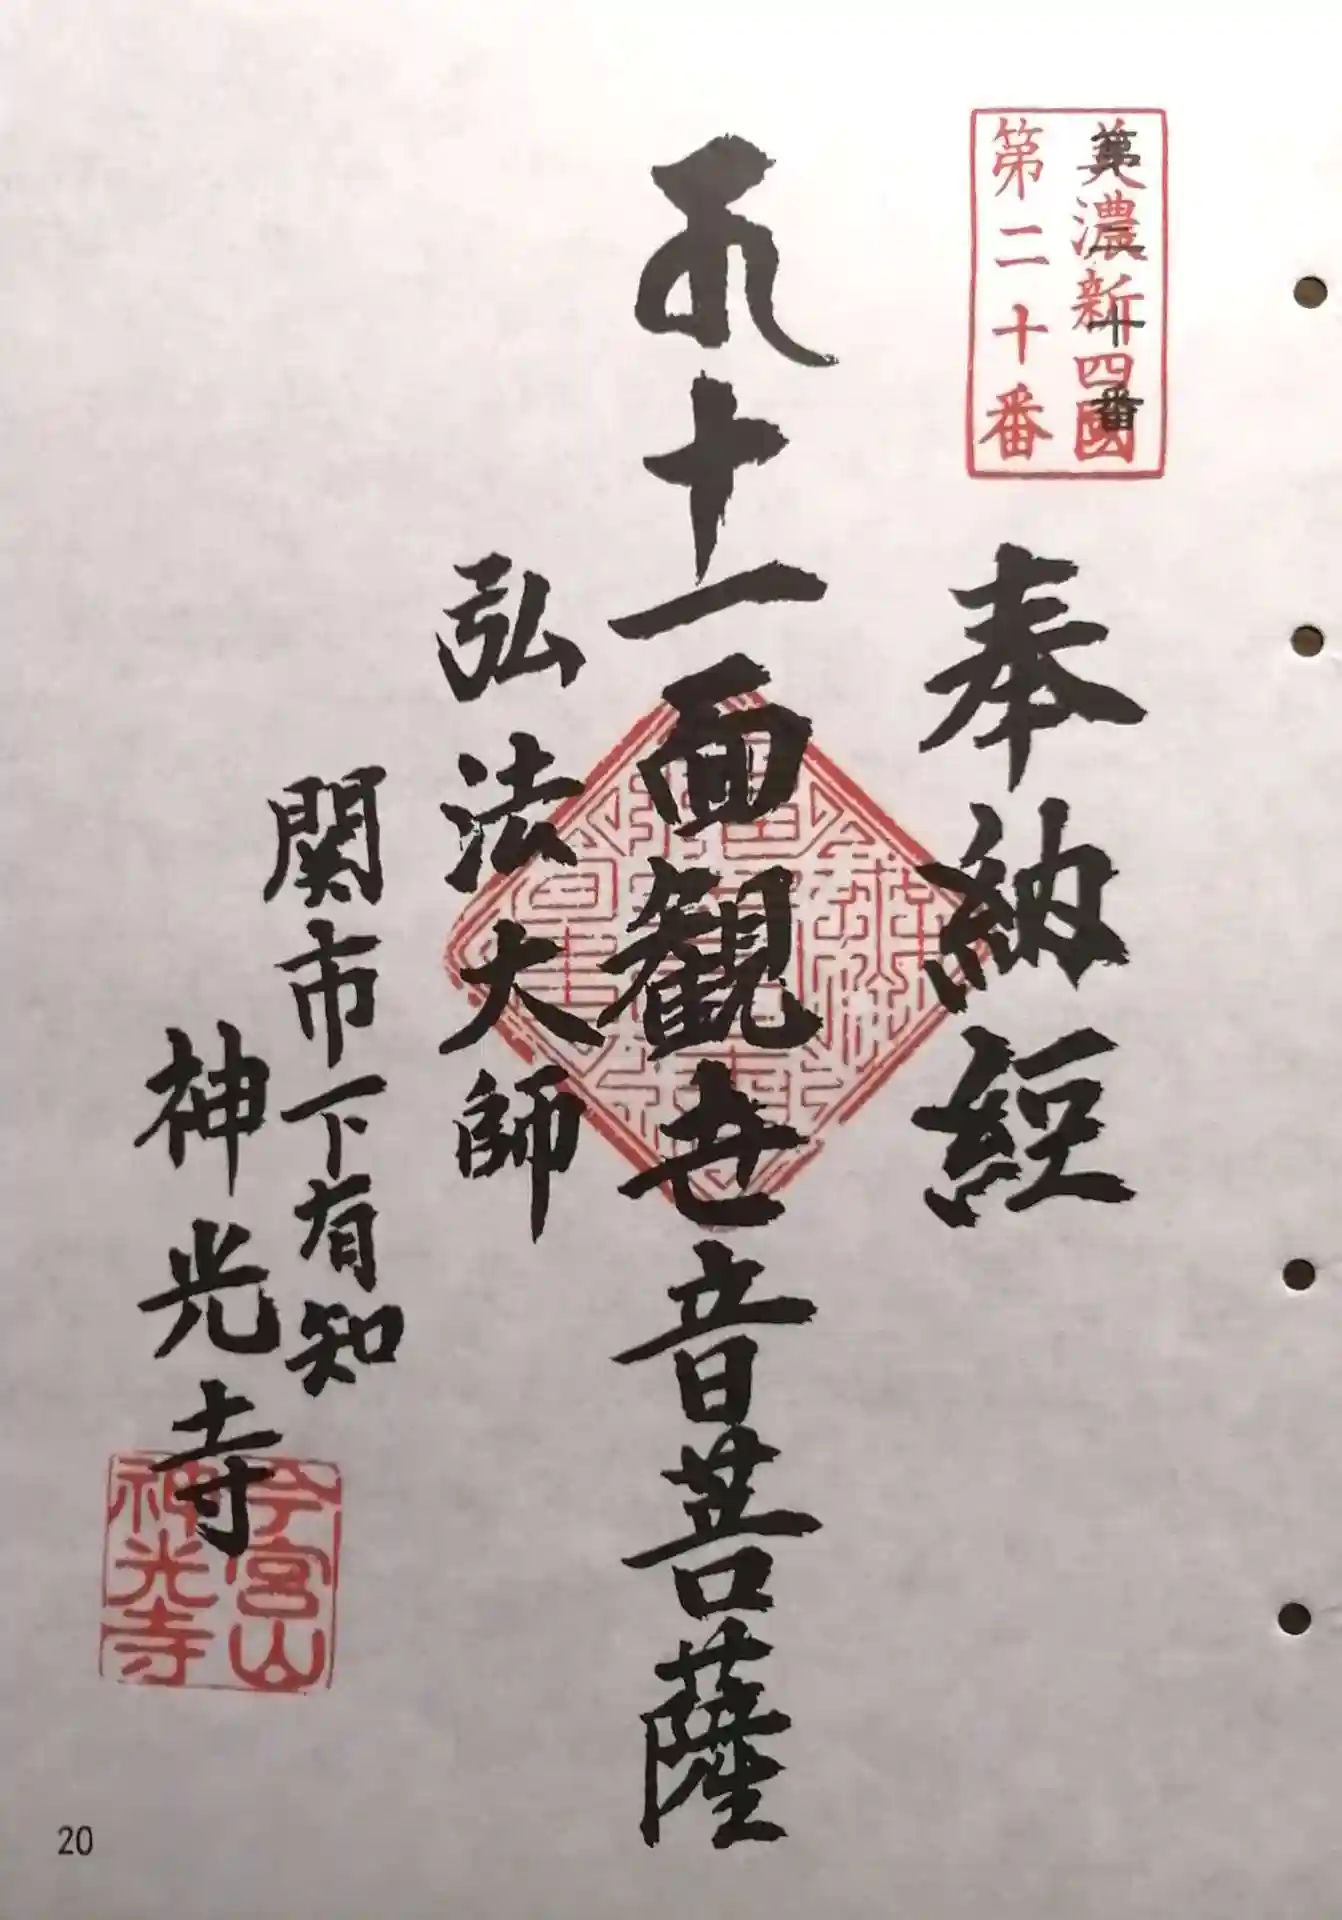 美濃新四國
第二十番
第二十番
奉納経
十一面観世音菩薩
弘法大師
関市下有知
神光寺
今宮山
神光寺
20